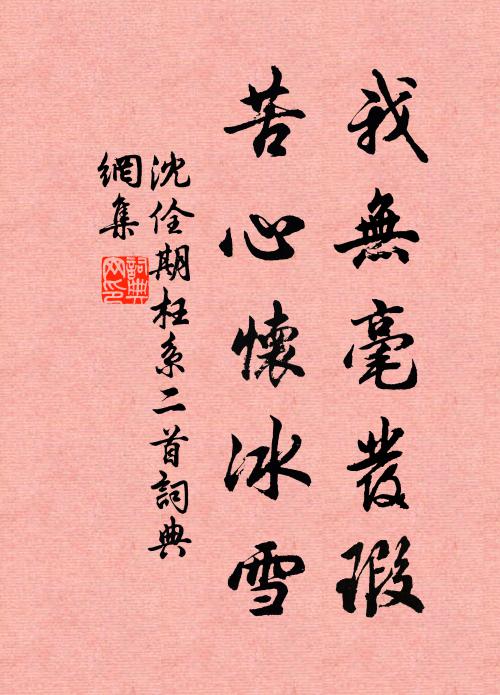 我無毫發瑕
苦心懷冰雪
沈佺期枉系二首詞典
網集
詞典
网印